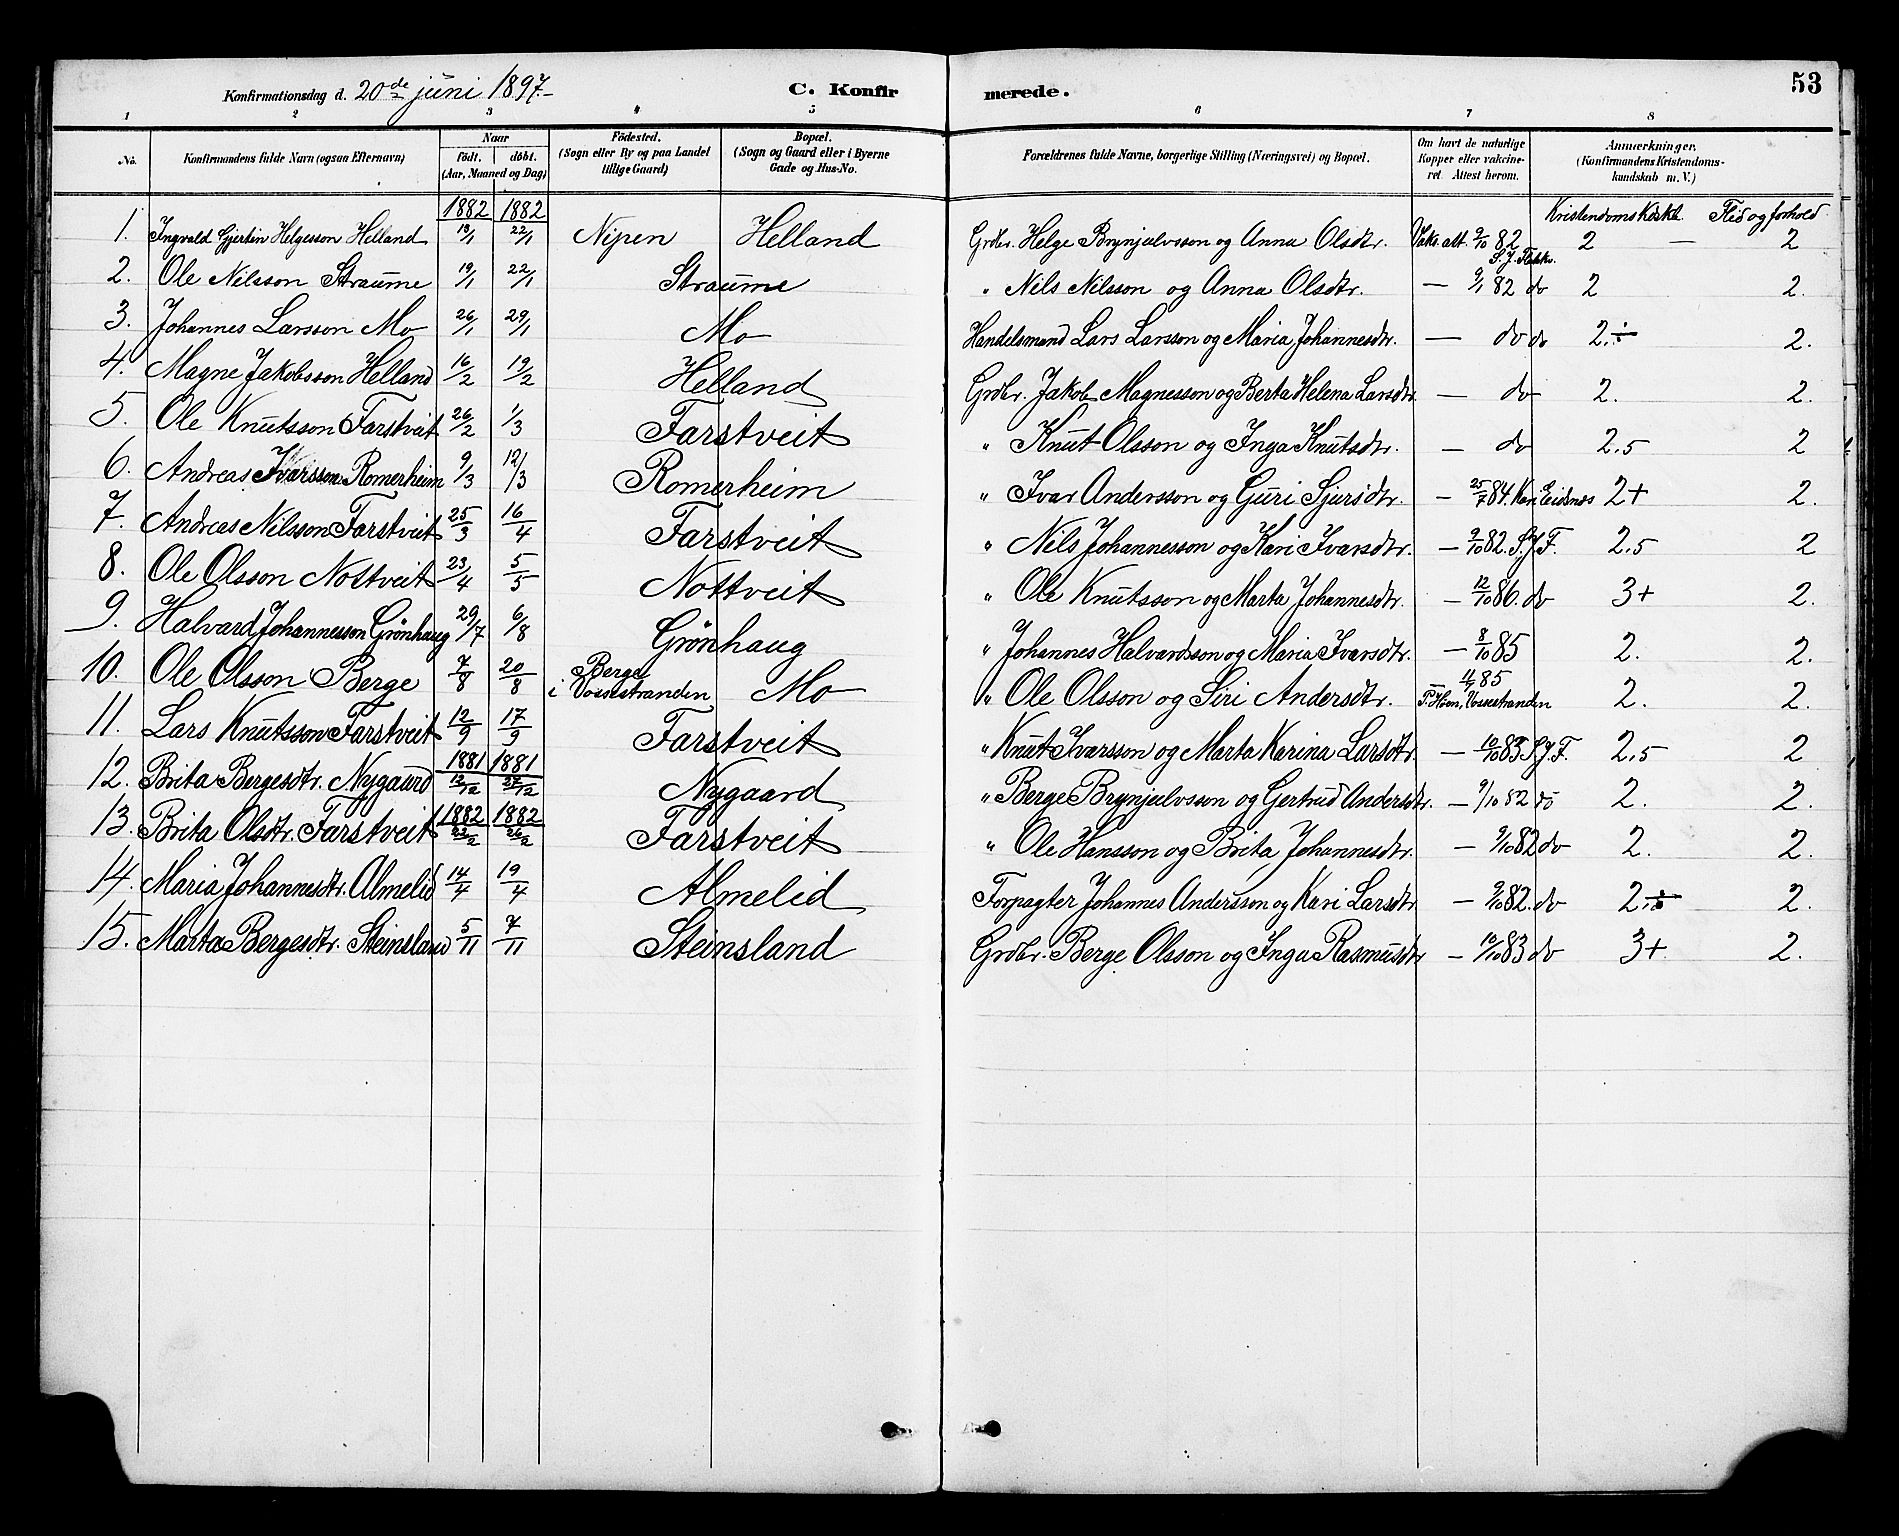 Konfirmationsdag d. 20de juni 1897.- C. Konfirmerede. 53
1 2 3 4 5 6 7 8
No. Konfirmandens fulde Navn (ogsaa Efternavn) Naar födt. döbt. (Aar, Maaned og Dag) Födested. (Sogn eller By og paa Landet tillige Gaard) Bopæl. (Sogn og Gaard eller i Byerne Gade og Hus-No. Forældrenes fulde Navne, borgerlige Stilling (Næringsvei) og Bopæl. Om havt de naturlige Kopper eller vakcineret. Attest herom. Anmærkninger. (Konfirmandens Kristendomskundskab m. V.)
1882 1882 Kristendoms Kdskb. Flid og forhold
1. Ingvald Gjertin Helgesson Helland 18/1 22/1 Nipen Helland Grdbr. Helge Brynjulvsson og Anna Olsdtr. Vakc. Att. 9/10 82 S. J. 2 — 2
2. Ole Nilsson Straume 19/1 22/1 Straume " Nils Nilsson og Anna Olsdtr. — 9/1 82 do 2 2.
3. Johannes Larsson Mo 26/1 29/1 Mo Handelsmand Lars Larsson og Maria Johannesdtr. — do do 2.÷ 2.
4. Magne Jakobsson Helland 16/2 19/2 Helland Grdbr. Jakob Magnesson og Berta Helena Larsdtr. — do 2. 2.
5. Ole Knutsson Farstveit 26/2 1/3 Farstveit " Knut Olsson og Inga Knutsdtr. — do 2.5 2
6. Andreas Ivarsson Romerheim 9/3 12/3 Romerheim " Ivar Andersson og Guri Sjursdtr. — 25/7 84. Kan. Eidsnes 2+ 2.
7. Andreas Nilsson Farstveit 25/3 16/4 Farstveit " Nils Johannesson og Kari Ivarsdtr. — 9/10 82. S.J.F. 2.5 2
8. Ole Olsson Nottveit 23/4 5/5 Nottveit " Ole Knutsson og Marta Johannesdtr. — 12/10 86. do 3+ 2.
9. Halvard Johannesson Grönhaug 29/7 6/8 Grönhaug " Johannes Halvardsson og Maria Ivarsdtr. — 8/10 85 2. 2.
10. Ole Olsson Berge 7/8 20/8 Berge i Vossestranden Mo " Ole Olsson og Siri Andersdtr. — 85 P. Höen, Vossestranden 2. 2.
11. Lars Knutsson Farstveit 12/9 17/9 Farstveit " Knut Ivarsson og Marta Karina Larsdtr. — 10/10 83 S.J.F. 2.5 2
1881 1881
12. Brita Bergesdtr. Nygaard 12/12 27/12 Nygaard " Berge Brynjulvsson og Gertrud Andersdtr. — 9/10 82 do 2. 2.
1882 1882
13. Brita Olsdtr. Farstveit 22/2 26/2 Farstveit " Ole Hansson og Brita Johannesdtr. — 9/10 82 do 2. 2.
14. Maria Johannesdtr. Almelid 14/4 19/4 Almelid Forpagter Johannes Andersson og Kari Larsdtr — 9/10 82. do 2.÷ 2.
15. Marta Bergesdtr. Steinsland 5/11 7/11 Steinsland Grdbr. Berge Olsson og Inga Rasmusdtr — 10/10 83 do 3+. 2.